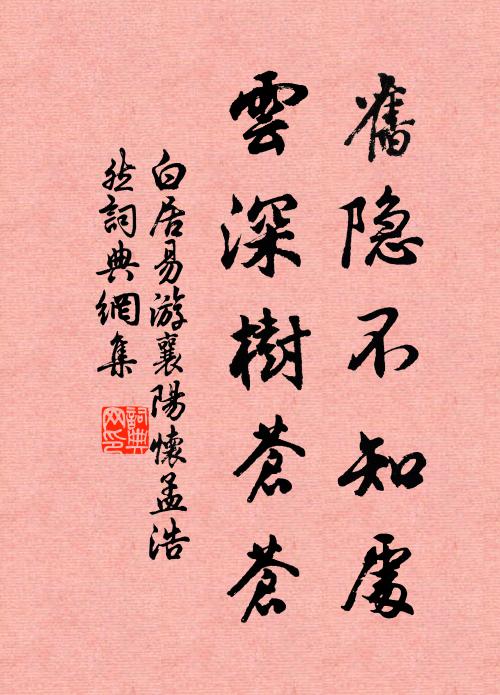 舊隐不知處
雲深樹蒼蒼
白居易游襄陽懷孟浩
然詞典網集
詞典网印